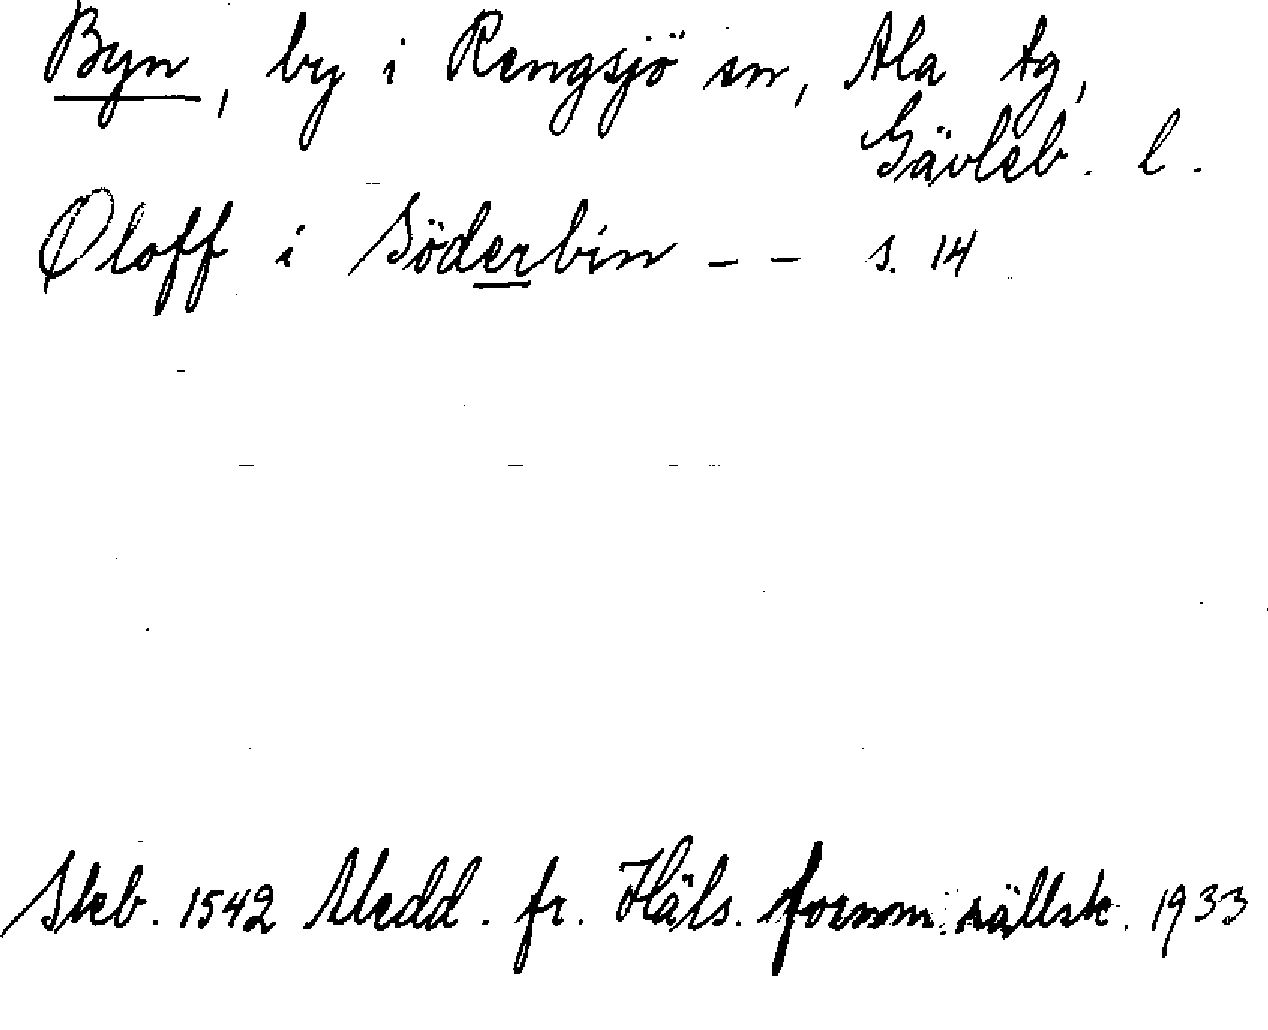 Byn, by i Rengsjö sn, Ala tg,
Gävleb. l.
Oloff i Söderbin -- s. 14
Skb. 1542 Medd. fr. Häls. fornm. sällsk. 1933